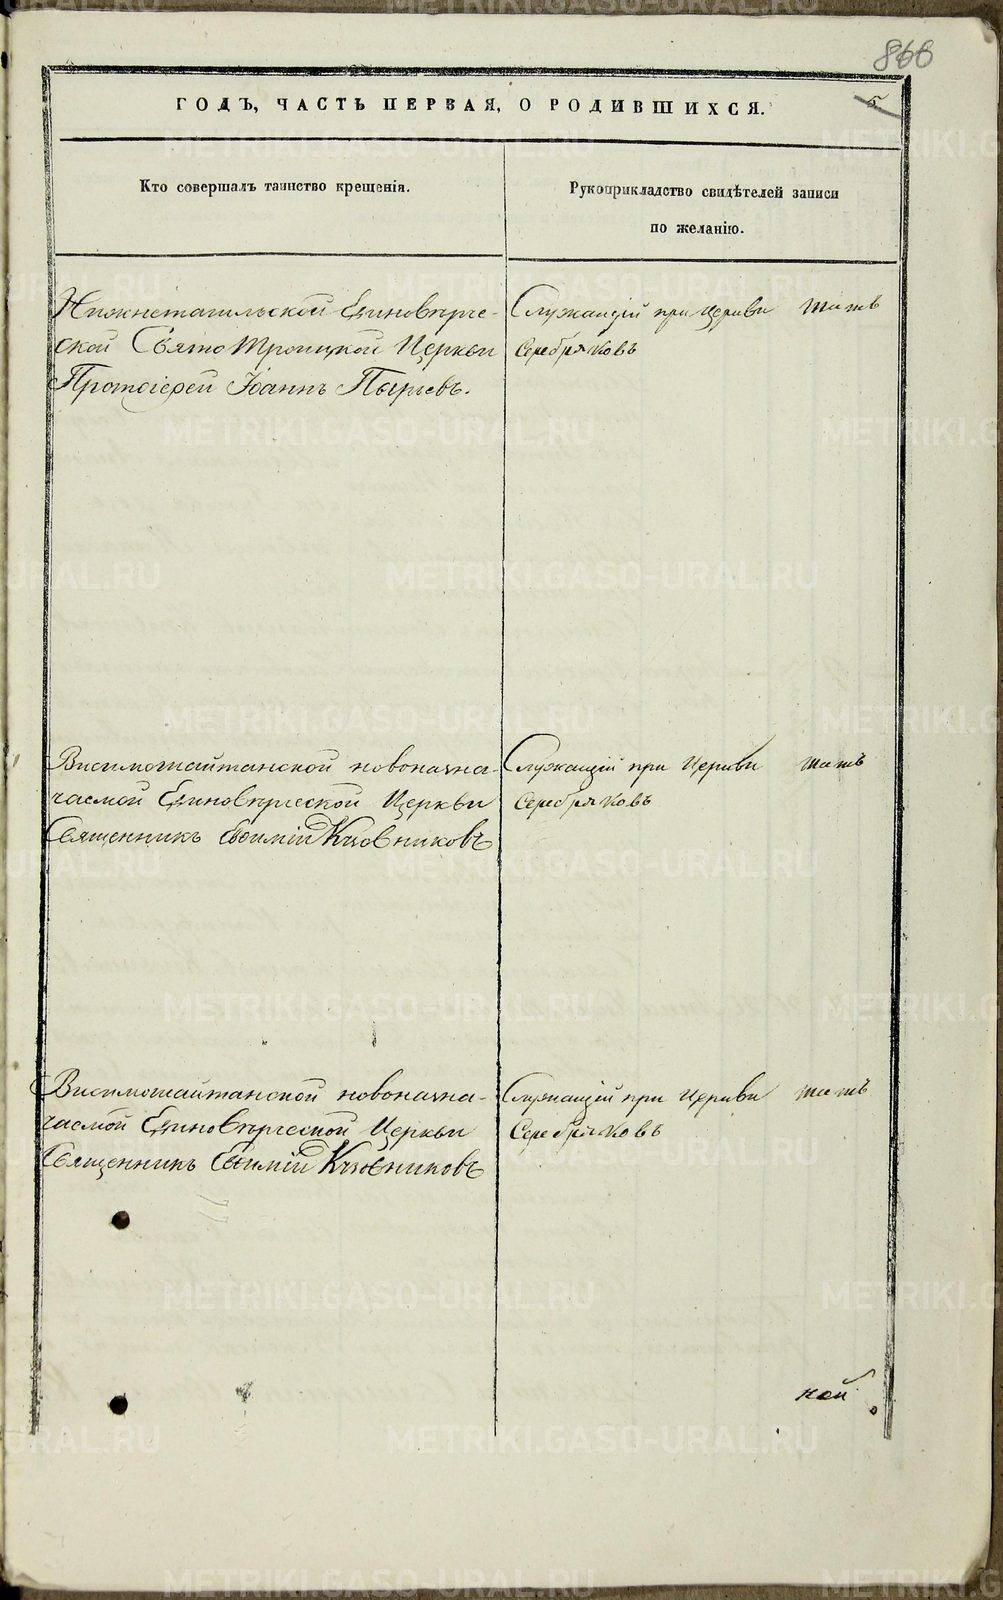 866
ГОДЪ, ЧАСТЬ ПЕРВАЯ, О РОДИВШИХСЯ.
5
Кто совершалъ таинство крещенія.
Рукоприкладство свидѣтелей записи
по желанію.
Нижнетагильской Единовѣрче-
ской Свято Троицкой Церкви
Протоіерей Іоаннъ Пырьевъ.
Служащій при Церкви
Серебряковъ
Висимошайтанской новоназна-
чаемой Единовѣрческой Церкви
Священникъ Евфимій
Служащій при Церкви
Серебряковъ
Висимошайтанской новоназна-
чаемой Единовѣрческой Церкви
Священникъ Евфимій
Служащій при Церкви
Серебряковъ
METRIKI.GASO-URAL.RU